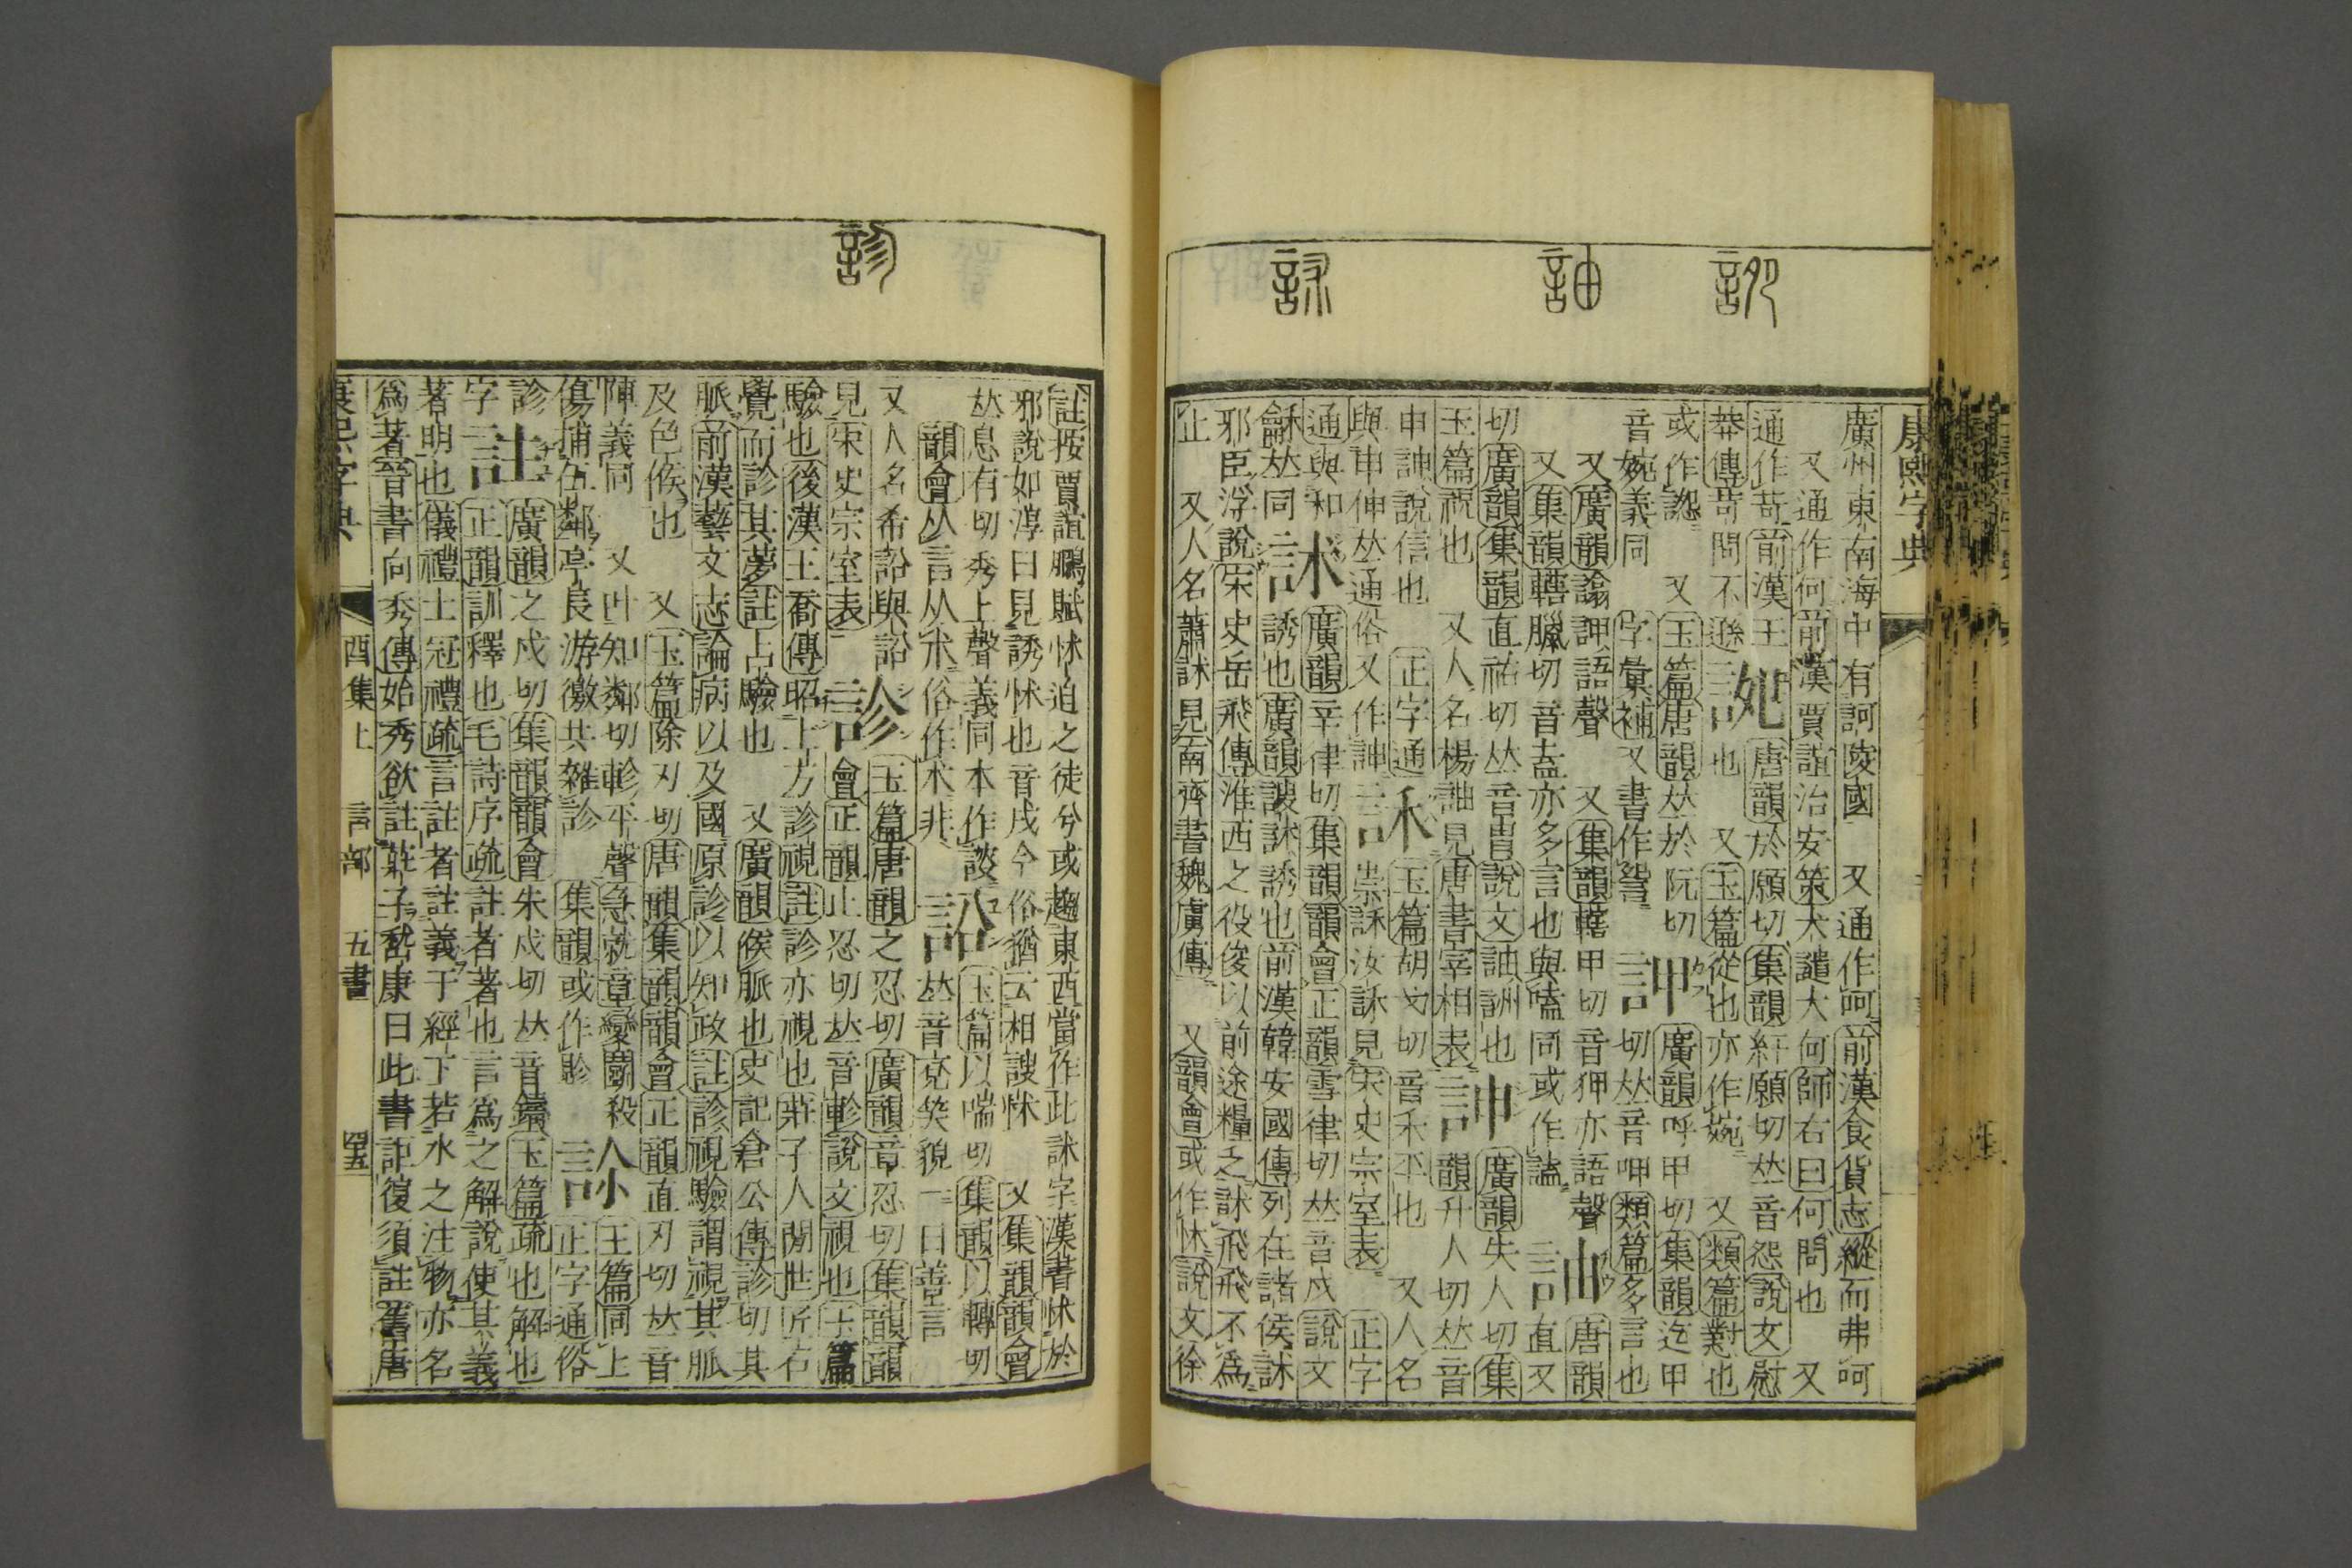 康熙字典
訹
廣州東南海中有訶陵國 又通作呵前漢食貨志縱而弗呵
又通作何前漢賈誼治安策大譴大何師古曰何問也 又
通作苛前漢王 唐韻於願切集韻紆願切𠀤音怨說文慰
莽傳苛問不遜 也 又玉篇從也亦作婉 又類篇對也
或作 又玉篇唐韻𠀤於阮切 廣韻呼甲切集韻迄甲
音婉義同 字彙補又書作 切𠀤音呷類篇多言也
又廣韻 語聲 又集韻轄甲切音狎亦語聲 唐韻
又集韻轄臘切音盍亦多言也與嗑同或作 直又
切廣韻集韻直祐切𠀤音胄說文 詶也 廣韻失人切集
玉篇祝也 又人名楊 見唐書宰相表 訷 韻升人切𠀤音
申訷說信也 正字通 訸 玉篇胡戈切音禾平也 又人名
與申伸𠀤通俗又作 崇訸汝訸見宋史宗室表 正字
通與和 訹 廣韻辛律切集韻韻會正韻雪律切𠀤音戌說文
龢𠀤同 誘也廣韻謏訹誘也前漢韓安國傳列在諸侯訹
邪臣浮說宋史岳飛傳淮西之役俊以前途糧乏訹飛飛不爲
止 又人名蕭訹見南齊書魏虜傳 又韻會或作怵說文徐
診
註按賈誼鵩賦怵迫之徒兮或趨東西當作此訹字漢書怵於
邪說如淳曰見誘怵也音戌今俗猶云相謏怵 又集韻韻會
𠀤息有切秀上聲義同本作 玉篇以喘切集韻以轉切
韻會从言从朮俗作术非 𠀤音兗笑貌一曰善言
又人名希 與 診 玉篇唐韻之忍切廣韻章忍切集韻韻
見宋史宗室表 會正韻止忍切𠀤音軫說文視也玉篇
驗也後漢王喬傳昭上方診視註診亦視也莊子人閒世匠石
覺而診其夢註占驗也 又廣韻候脈也史記倉公傳診切其
脈前漢藝文志論病以及國原診以知政註診視驗謂視其脈
及色候也 又玉篇除刃切唐韻集韻韻會正韻直刃切𠀤音
陣義同 又叶知鄰切軫平聲急就章變鬭殺 玉篇同上
傷捕伍鄰亭長游徼共雜診 集韻或作 正字通俗
診 註 廣韻之戍切集韻韻會朱戍切𠀤音鑄玉篇疏也解也
字 正韻訓釋也毛詩序疏註者著也言爲之解說使其義
著明也儀禮士冠禮疏言註者註義于經下若水之注物亦名
爲著晉書向秀傳始秀欲註莊子嵇康曰此書詎復須註舊唐
康熙字典 酉集上 言部 五畫